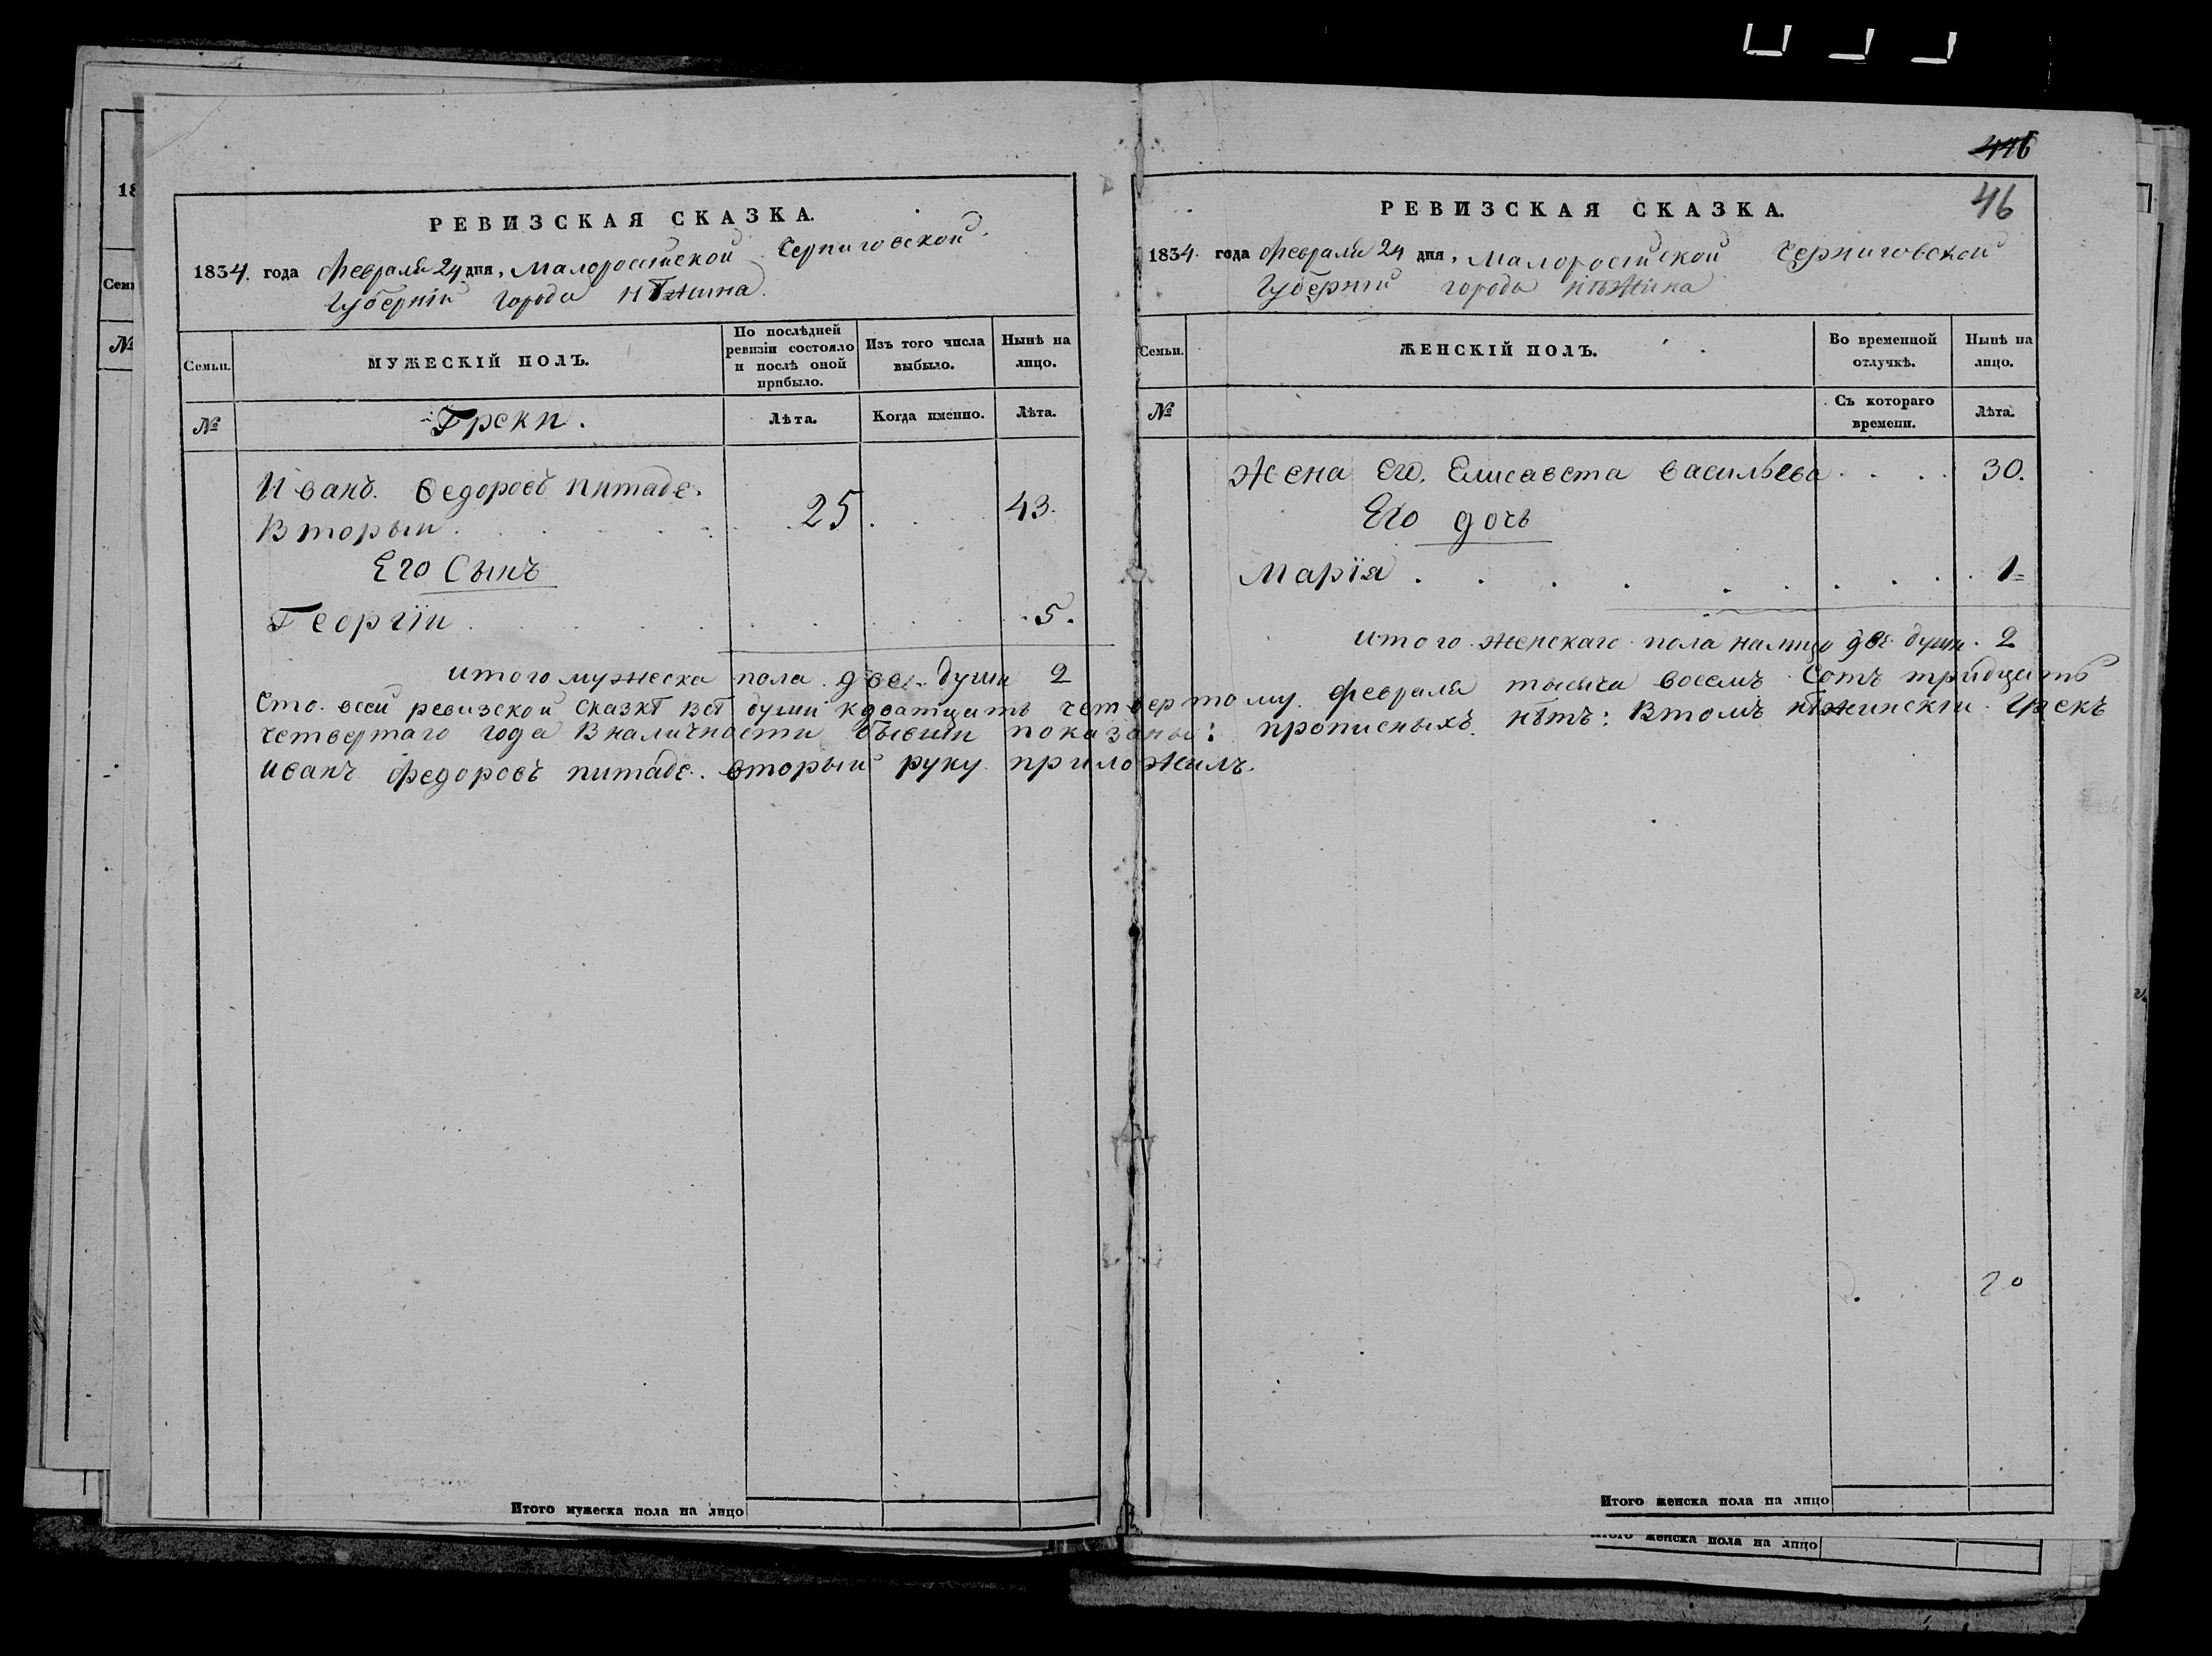 446
46
РЕВИЗСКАЯ СКАЗКА.
1834. года Февраля 24 дня, Малоросійской Черниговской
Губерніи Города нѣжина.
Семьи.
МУЖЕСКІЙ ПОЛЪ.
По послѣдней ревизіи состояло и послѣ оной прибыло.
Изъ того числа выбыло.
Нынѣ на лицо.
№
Греки.
Лѣта.
Когда именно.
Лѣта.
Иванъ Ѳедоровъ питаде.
Вторыи 25 43.
Его Сынъ
Георгіи 5.
итого мужеска пола две души 2
РЕВИЗСКАЯ СКАЗКА.
1834. года Февраля 24 дня, Малоросійской Черниговской
Губерніи города нѣжина
Семьи.
ЖЕНСКІЙ ПОЛЪ.
Во временной отлучкѣ.
Нынѣ на лицо.
№
Съ котораго времени.
Лѣта.
Жена Его Елисавета васильева 30.
Его дочь
Марія 1
итого женскаго пола налицо две души 2
Сто всей ревизской сказкѣ всѣ души кдватцать четвертому февраля тысяча восемъ сотъ тридцать
четвертаго года Вналичности бывши показаны: прописныхъ нѣтъ: Втомъ нѣжинскіи Грекъ
иванъ федоровъ питаде вторыи руку приложилъ.
20
Итого мужеска пола на лицо
Итого женска пола на лицо
Итого женска пола на лицо